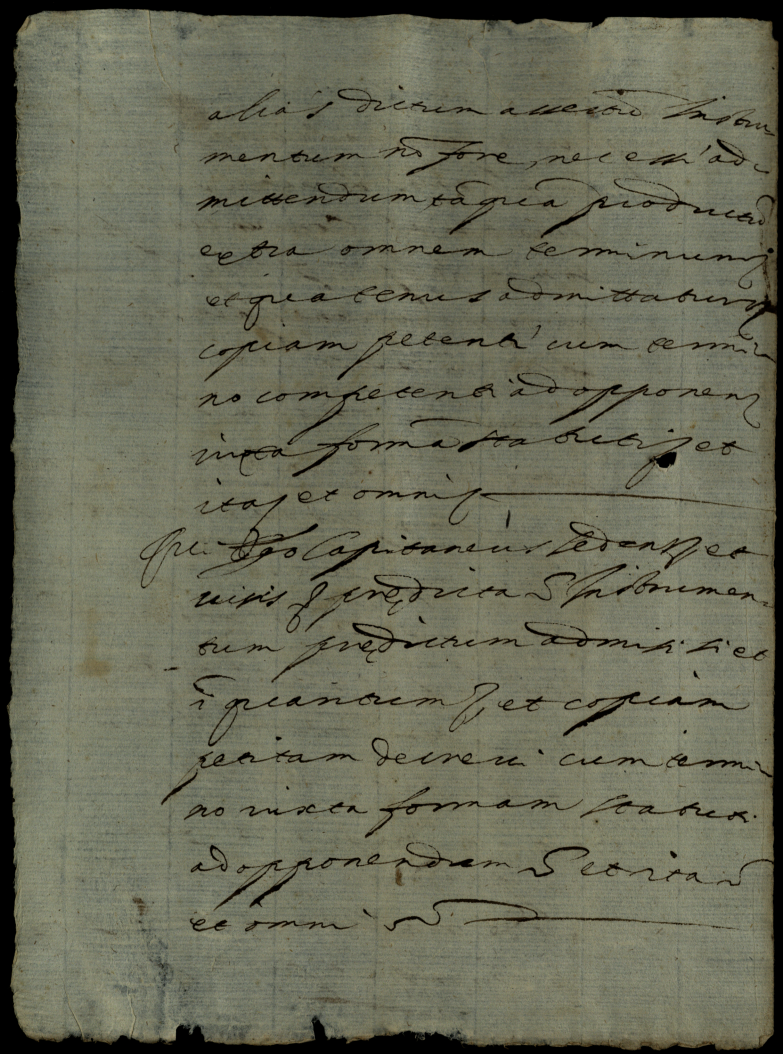 alias dictum assertū Instru
mentum nō fore, nec esse ad
mittendum, tāquā productū
extra omnem terminum
et quatenus admittatur
copiam petenti cum termi
no competenti ad opponen
iuxta formā statuti et
ita et omni
Qui Capitaneus sedens et
uisis prędicta Instrumen
tum prędictum admisit et
ī quantum et copiam
petitam decreui cum termi
no iuxta formam statuti
ad opponendum et ita
et omni